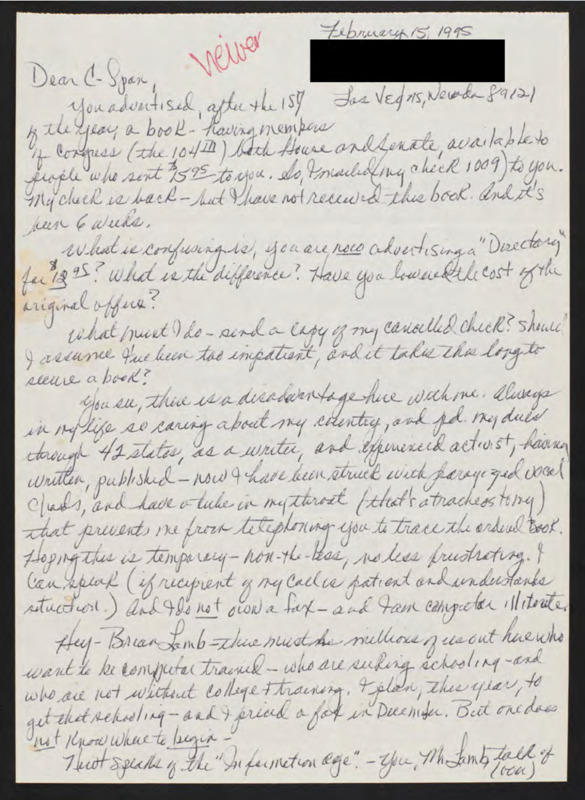 February 15, 1995
viewer
Las Vegas, Nevada 89121
Dear C-Span,
You advertised, after the 1st
of the year, a book - having members
of Congress (the 104th) both House and Senate, available to
people who sent $ 15 95 to you. So, I mailed my check 1009) to you.
My check is back - but I have not received this book. And it's
been 6 weeks.
What is confusing is, you are now advertising a "Directory"
for $ 95? What is the difference? Have you lowered the cost of the
original offer?
What must I do - send a copy of my cancelled check? Should
I assume I've been too impatient, and it takes this long to
secure a book?
You see, there is a disadvantage here with me. Always
in my life so caring about my country, and pd. my dues
through 42 states, as a writer, and experienced activist, - having
written, published - now I have been struck with paralyzed vocal
chords, and have a tube in my throat (that's a tracheostomy)
that prevents me from telephoning you to trace the ordered book.
Hoping this is temporary - non-the-less, no less frustrating. I
can speak (if recipient of my call is patient and understands
situation.) And I do not own a fax - and I am computer illiterate.
Hey - Brian Lamb - there must be millions of us out here who
want to be computer trained - who are seeking schooling - and
who are not without college & training. I plan, this year, to
get that schooling - and I priced a fax in December. But one does
not know where to begin -
Newt speaks of the "Information Age". - You, Mr. Lamb, talk of
(over)